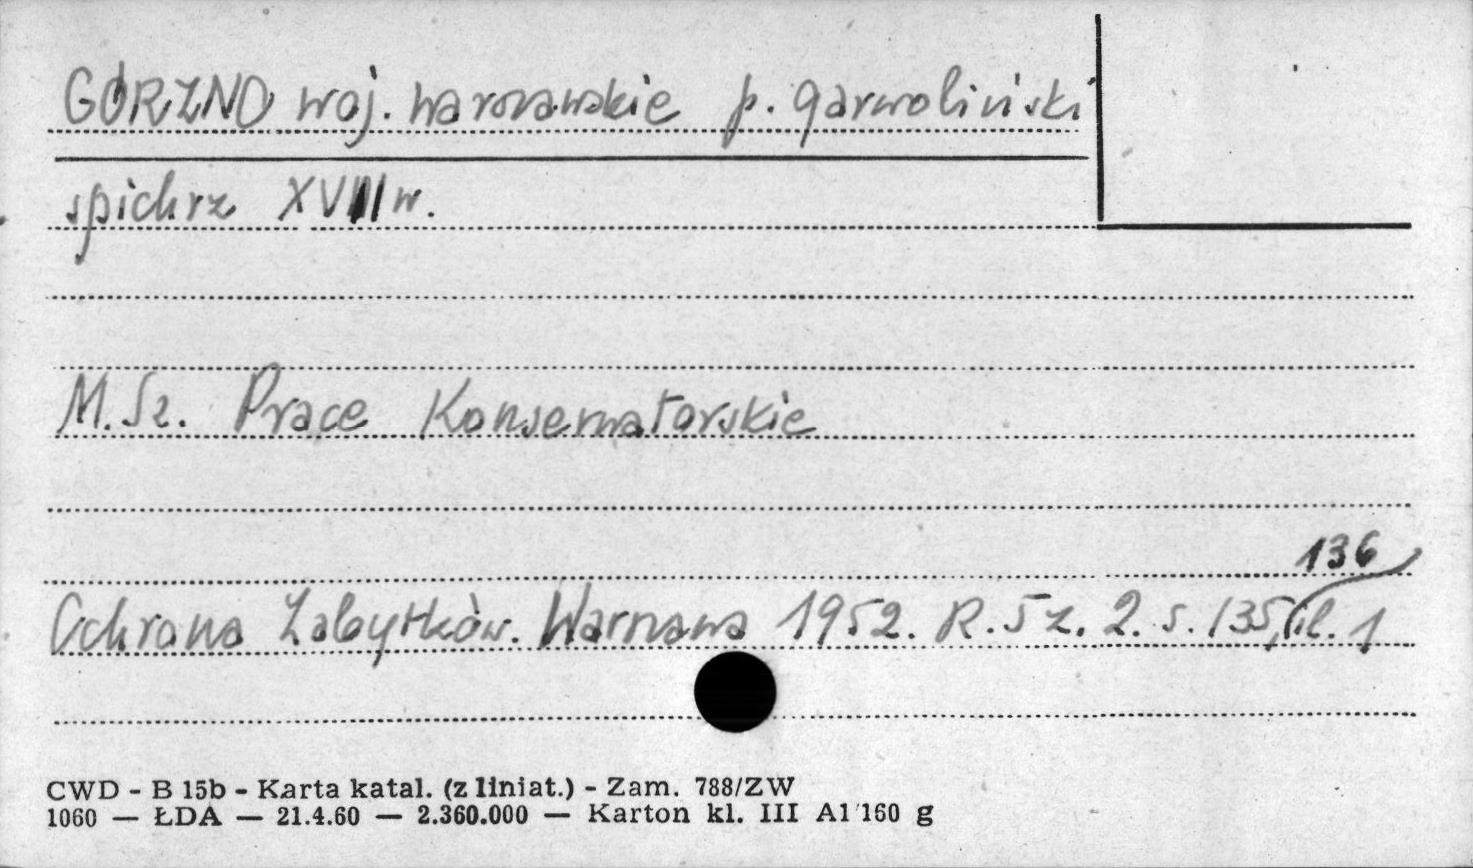 GÓRZNO woj. warszawskie p. garwoliński
spichrz XVIII w.
M. Sz. Prace Konserwatorskie
136
Ochrona Zabytków. Warszawa 1952. R. 5 z. 2. s. 135, il. 1
CWD - B 15b - Karta katal. (z liniat.) - Zam. 788/ZW
1060 — ŁDA — 21.4.60 — 2.360.000 — Karton kl. III A1 160 g